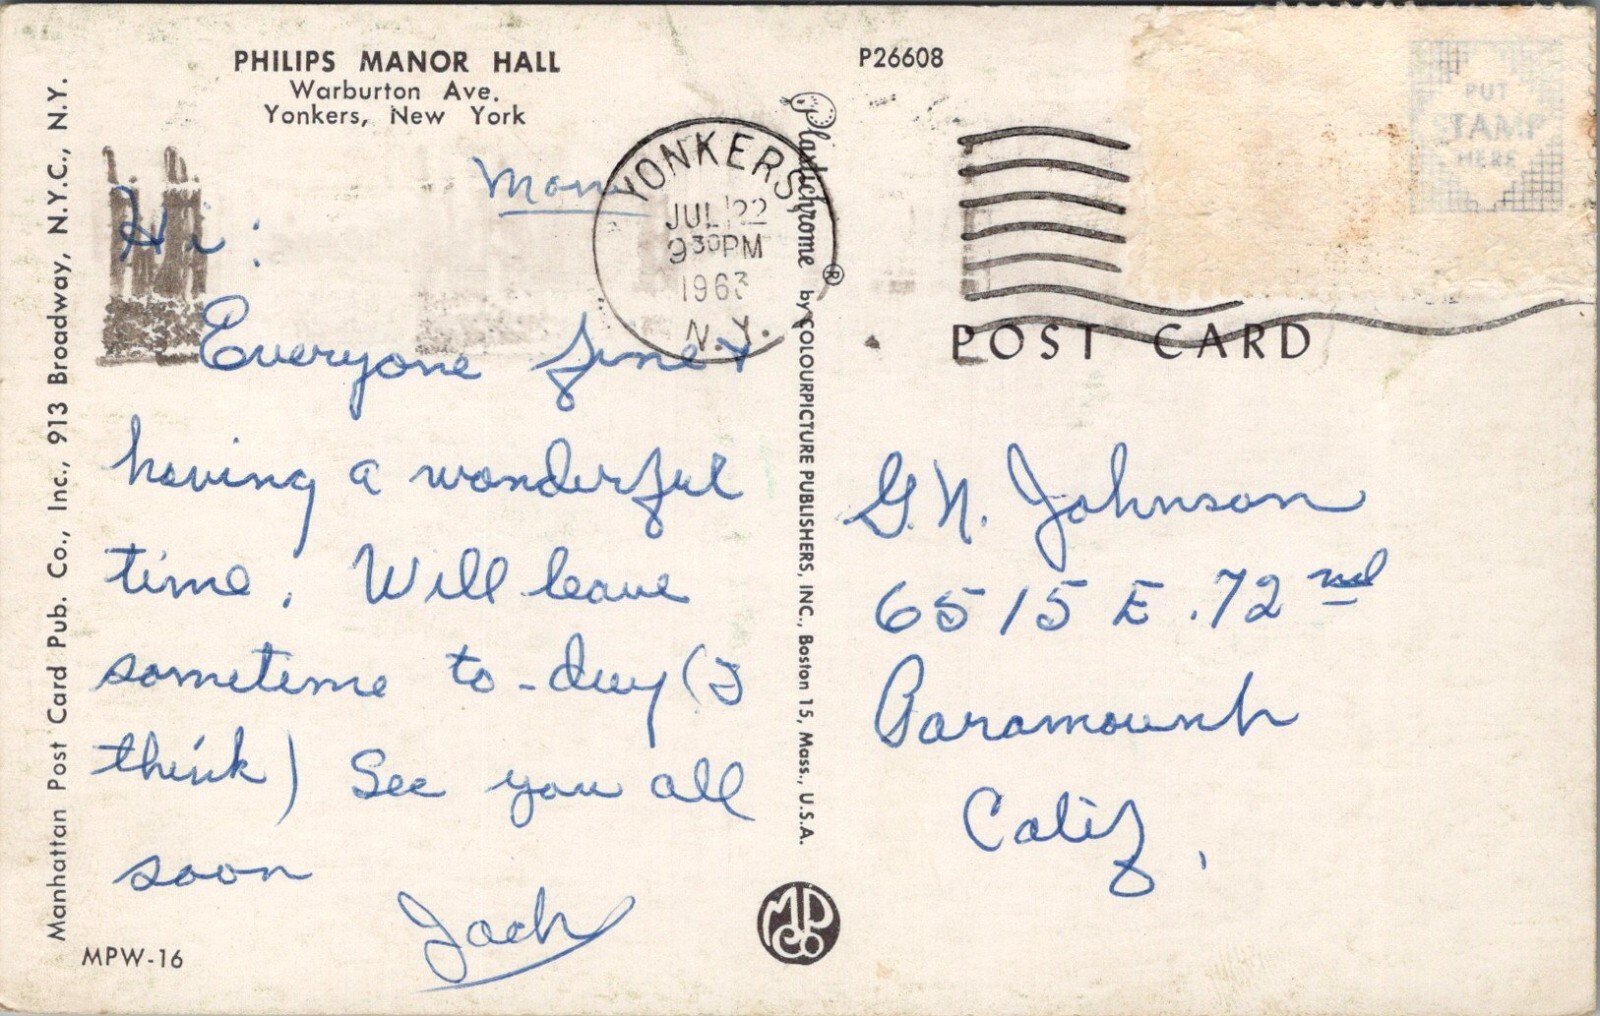 PHILIPS MANOR HALL
Warburton Ave.
Yonkers, New York
P26608
PUT
STAMP
HERE
YONKERS
JUL 22
9 30 PM
1963
N.Y.
POST CARD
Mon
Hi:
Everyone fine +
having a wonderful
time. Will leave
sometime to-day (I
think) See you all
soon
Jack
G.N. Johnson
6515 E. 72nd
Paramount
Calif.
Manhattan Post Card Pub. Co., Inc., 913 Broadway, N.Y.C., N.Y.
Plastichrome ® by COLOURPICTURE PUBLISHERS, INC., Boston 15, Mass., U.S.A.
MPCo
MPW-16